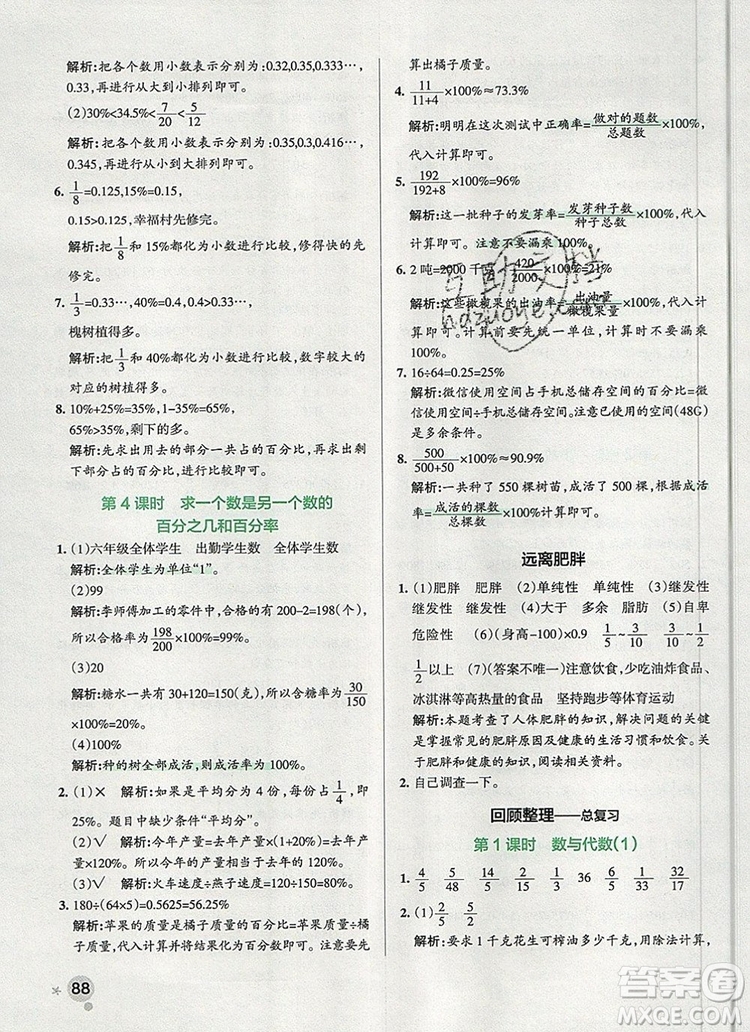 解析:把各个数用小数表示分别为:0.32,0.35,0.333…,
0.33,再进行从大到小排列即可。
(2)30%<34.5%<7/20<5/12
解析:把各个数用小数表示分别为:0.35,0.3,0.416…,
0.345,再进行从大到小排列即可。
6. 1/8=0.125,15%=0.15,
0.15>0.125,幸福村先修完。
解析:把1/8和15%都化为小数进行比较,修得快的先
修完。
7. 1/3=0.33…,40%=0.4,0.4>0.33…,
槐树植得多。
解析:把1/3和40%都化为小数进行比较,数字较大的
对应的树植得多。
8. 10%+25%=35%,1-35%=65%,
65%>35%,剩下的多。
解析:先求出用去的部分一共占的百分比,再求出剩
下部分占的百分比,进行比较即可。
第4课时 求一个数是另一个数的
百分之几和百分率
1. (1)六年级全体学生 出勤学生数 全体学生数
解析:全体学生为单位“1”。
(2)99
解析:李师傅加工的零件中,合格的有200-2=198(个),
所以合格率为198/200×100%=99%。
(3)20
解析:糖水一共有30+120=150(克),所以含糖率为30/150
×100%=20%。
(4)100%
解析:种的树全部成活,则成活率为100%。
2. (1)× 解析:如果是平均分为4份,每份占1/4,即
25%。题目中缺少条件“平均分”。
(2)√ 解析:今年产量=去年产量×(1+20%)=去年产
量×120%。
(3)√ 解析:火车速度÷燕子速度=80%。
3. 180÷(64×5)=0.5625=56.25%
解析:苹果的质量是橘子质量的百分比=苹果质量÷橘
子质量,代入计算并将结果化为百分比即可。注意要先
88
算出橘子质量。
4. 11/11+4×100%≈73.3%
解析:明明在这次测试中正确率=做对的题数/总题数×100%,
代入计算即可。
5. 192/192+8×100%=96%
解析:这一批种子的发芽率=发芽种子数/种子总数×100%,代入
计算即可。注意不要漏乘100%。
6. 2吨=2000千克 420/2000×100%=21%
解析:这些橄榄果的出油率=出油量/橄榄果量×100%,代入计
算即可。计算前要先统一单位,计算时不要漏乘
100%。
7. 16÷64=0.25=25%
解析:微信使用空间占手机总储存空间的百分比=微
信使用空间÷手机总储存空间。注意已使用空间(48G)
是多余条件。
8. 500/500+50×100%≈90.9%
解析:一共种了550棵树苗,成活了500棵,成活
率=成活的棵数/总棵数×100%。
远离肥胖
1. (1)肥胖 肥胖 (2)单纯性 单纯性 (3)继发性
继发性 继发性 (4)大于 多余 脂肪 (5)自卑
危险性 (6)(身高-100)×0.9 1/5~3/10 3/10~1/2
1/2以上 (7)(答案不唯一)注意饮食,少吃油炸食品、
冰淇淋等高热量的食品 坚持跑步等体育运动
解析:本题考查了人体肥胖的知识,解决问题的关键
是掌握常见的肥胖原因及健康的生活习惯和饮食,
肥胖问题及健康的生活方式,阅读相关资料。
2. 自己调查一下。
回顾整理——总复习
第1课时 数与代数(1)
1. 4/5 5/48 14/5 2/15 1/3 36 6/5 1/4 32/17
2. (1)2/5 5/2
解析:要求1千克花生可榨油多少千克,用除法计算,
答案圈
MXQE.COM